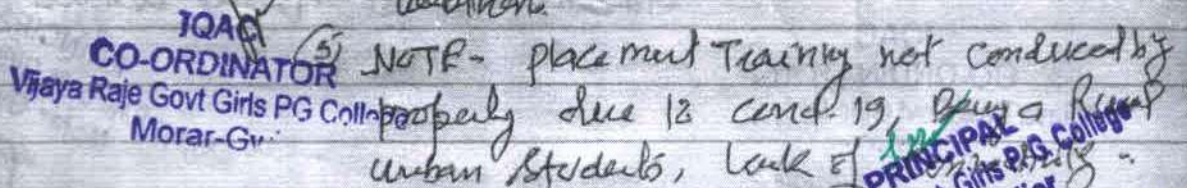 IQAC
CO-ORDINATOR
Vijaya Raje Govt Girls PG College
Morar-Gw
(5) NOTE- placement Training not conduced by
properly due 12 cond. 19, a Rural
urban Students, Lack of
PRINCIPAL
Girls P.G. College